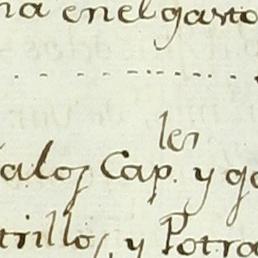 na en el gasto
alos Cap.les y ga
trillos, y Potra